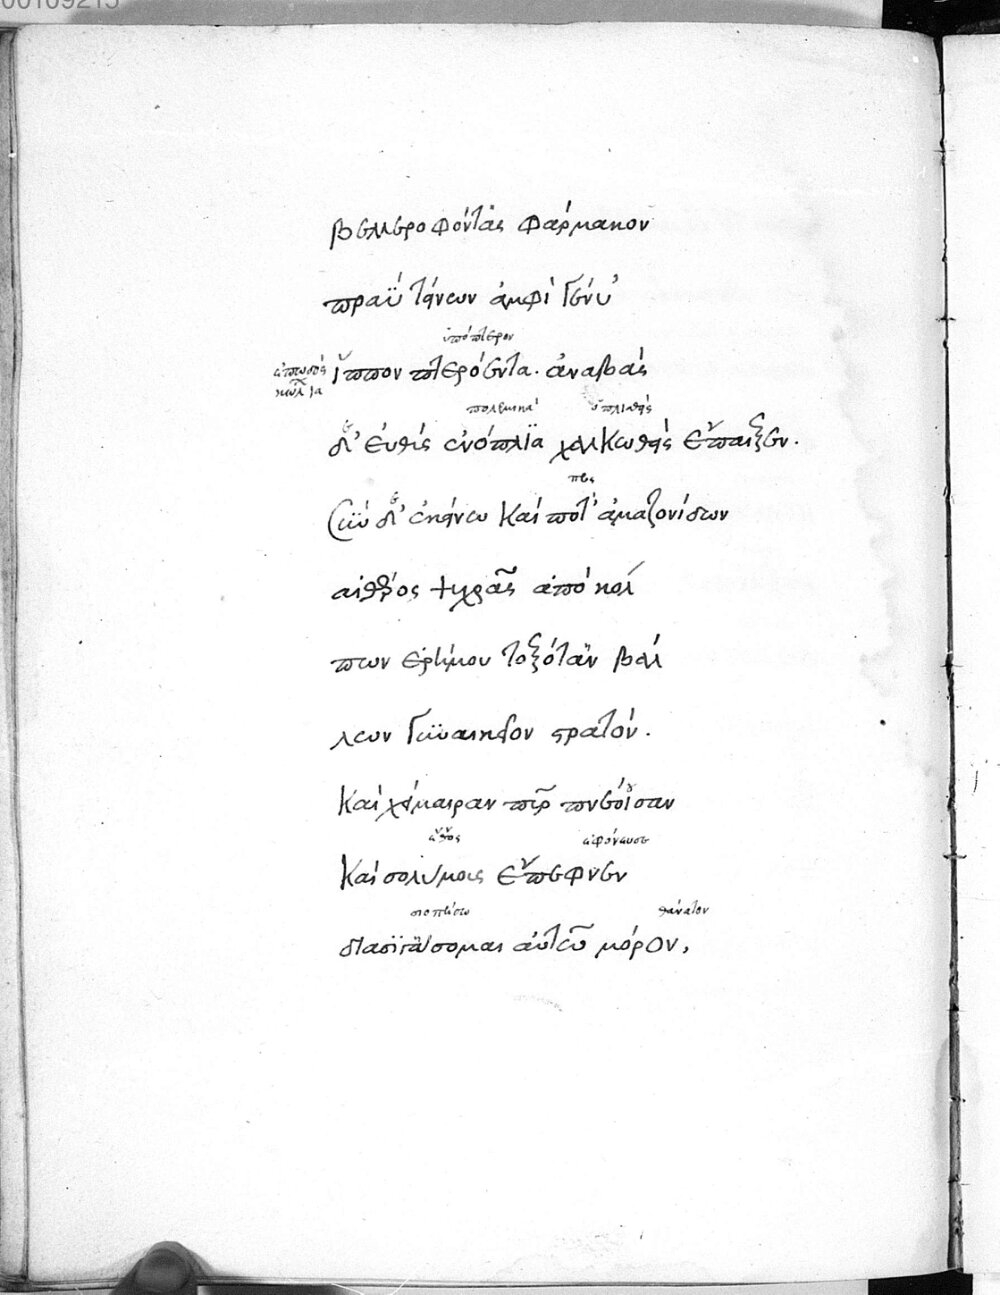 00109215
βελλεροφόντας φάρμακον
πραῢ τήνεων ἀμφὶ γένυ'
ὑπόπτερον
ἵππον πτερόεντα. ἀναβὰς
πολεμικὰ ὁπλισθεὶς
δ' εὐθὺς ἐνόπλϊα χαλκωθεὶς ἔπαιξεν.
σὺν δ' ἐκήνω καί ποτ' ἀμαζονίδων
αἰθέρος ψυχρᾶς ἀπὸ κόλ
πων ἐρήμου τοξόταν βάλ
λεων γυναικεῖον στρατόν.
Καὶ χίμαιραν πῦρ πνέοισαν
ἔθνος ἀφόνευσε
Καὶ σολύμοις ἔπεφνεν
σιοπήσω θάνατον
διασϊγάσομαι αὐτῶ μόρον,